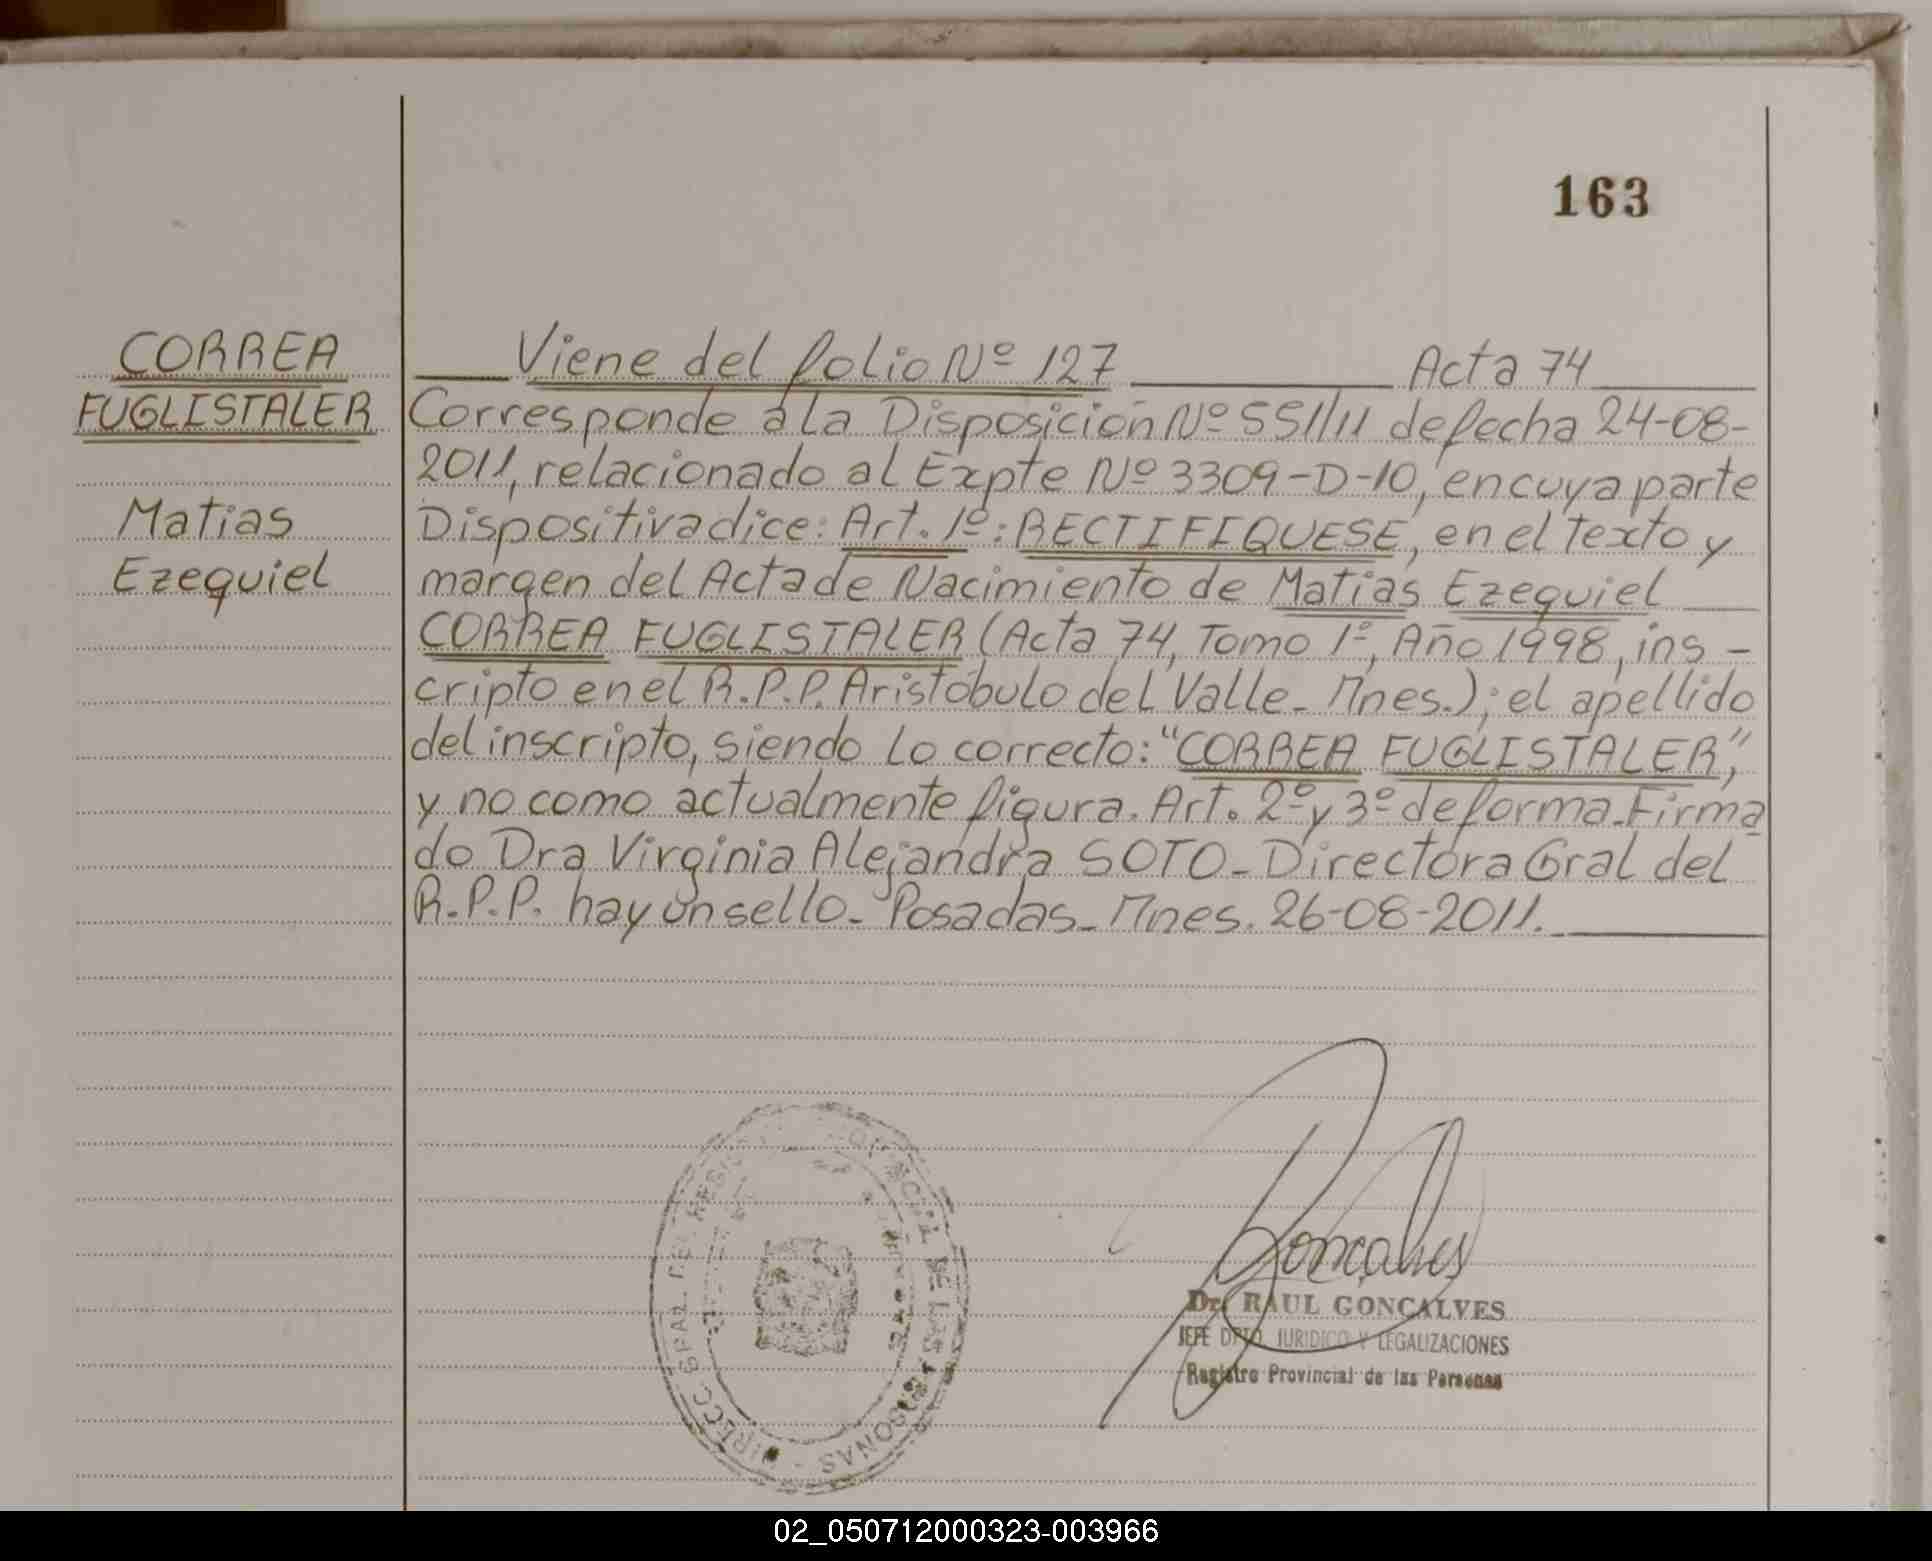 163
CORREA
FUGLISTALER
Matias
Ezequiel
Viene del folio Nº 127 Acta 74
Corresponde a la Disposición Nº 551/11 de fecha 24-08-
2011, relacionado al Expte Nº 3309-D-10, en cuya parte
Dispositiva dice: Art. 1º: RECTIFIQUESE, en el texto y
margen del Acta de Nacimiento de Matias Ezequiel
CORREA FUGLISTALER (Acta 74, Tomo 1º, Año 1998, ins-
cripto en el R.P.P. Aristóbulo del Valle - Mnes.); el apellido
del inscripto, siendo lo correcto: "CORREA FUGLISTALER",
y no como actualmente figura. Art. 2º y 3º de forma. Firma
do Dra Virginia Alejandra SOTO - Directora Gral del
R.P.P. hay un sello - Posadas - Mnes. 26-08-2011.
Goncalves
Dr. RAUL GONCALVES
JEFE DPTO. JURIDICO Y LEGALIZACIONES
Registro Provincial de las Personas
02_050712000323-003966